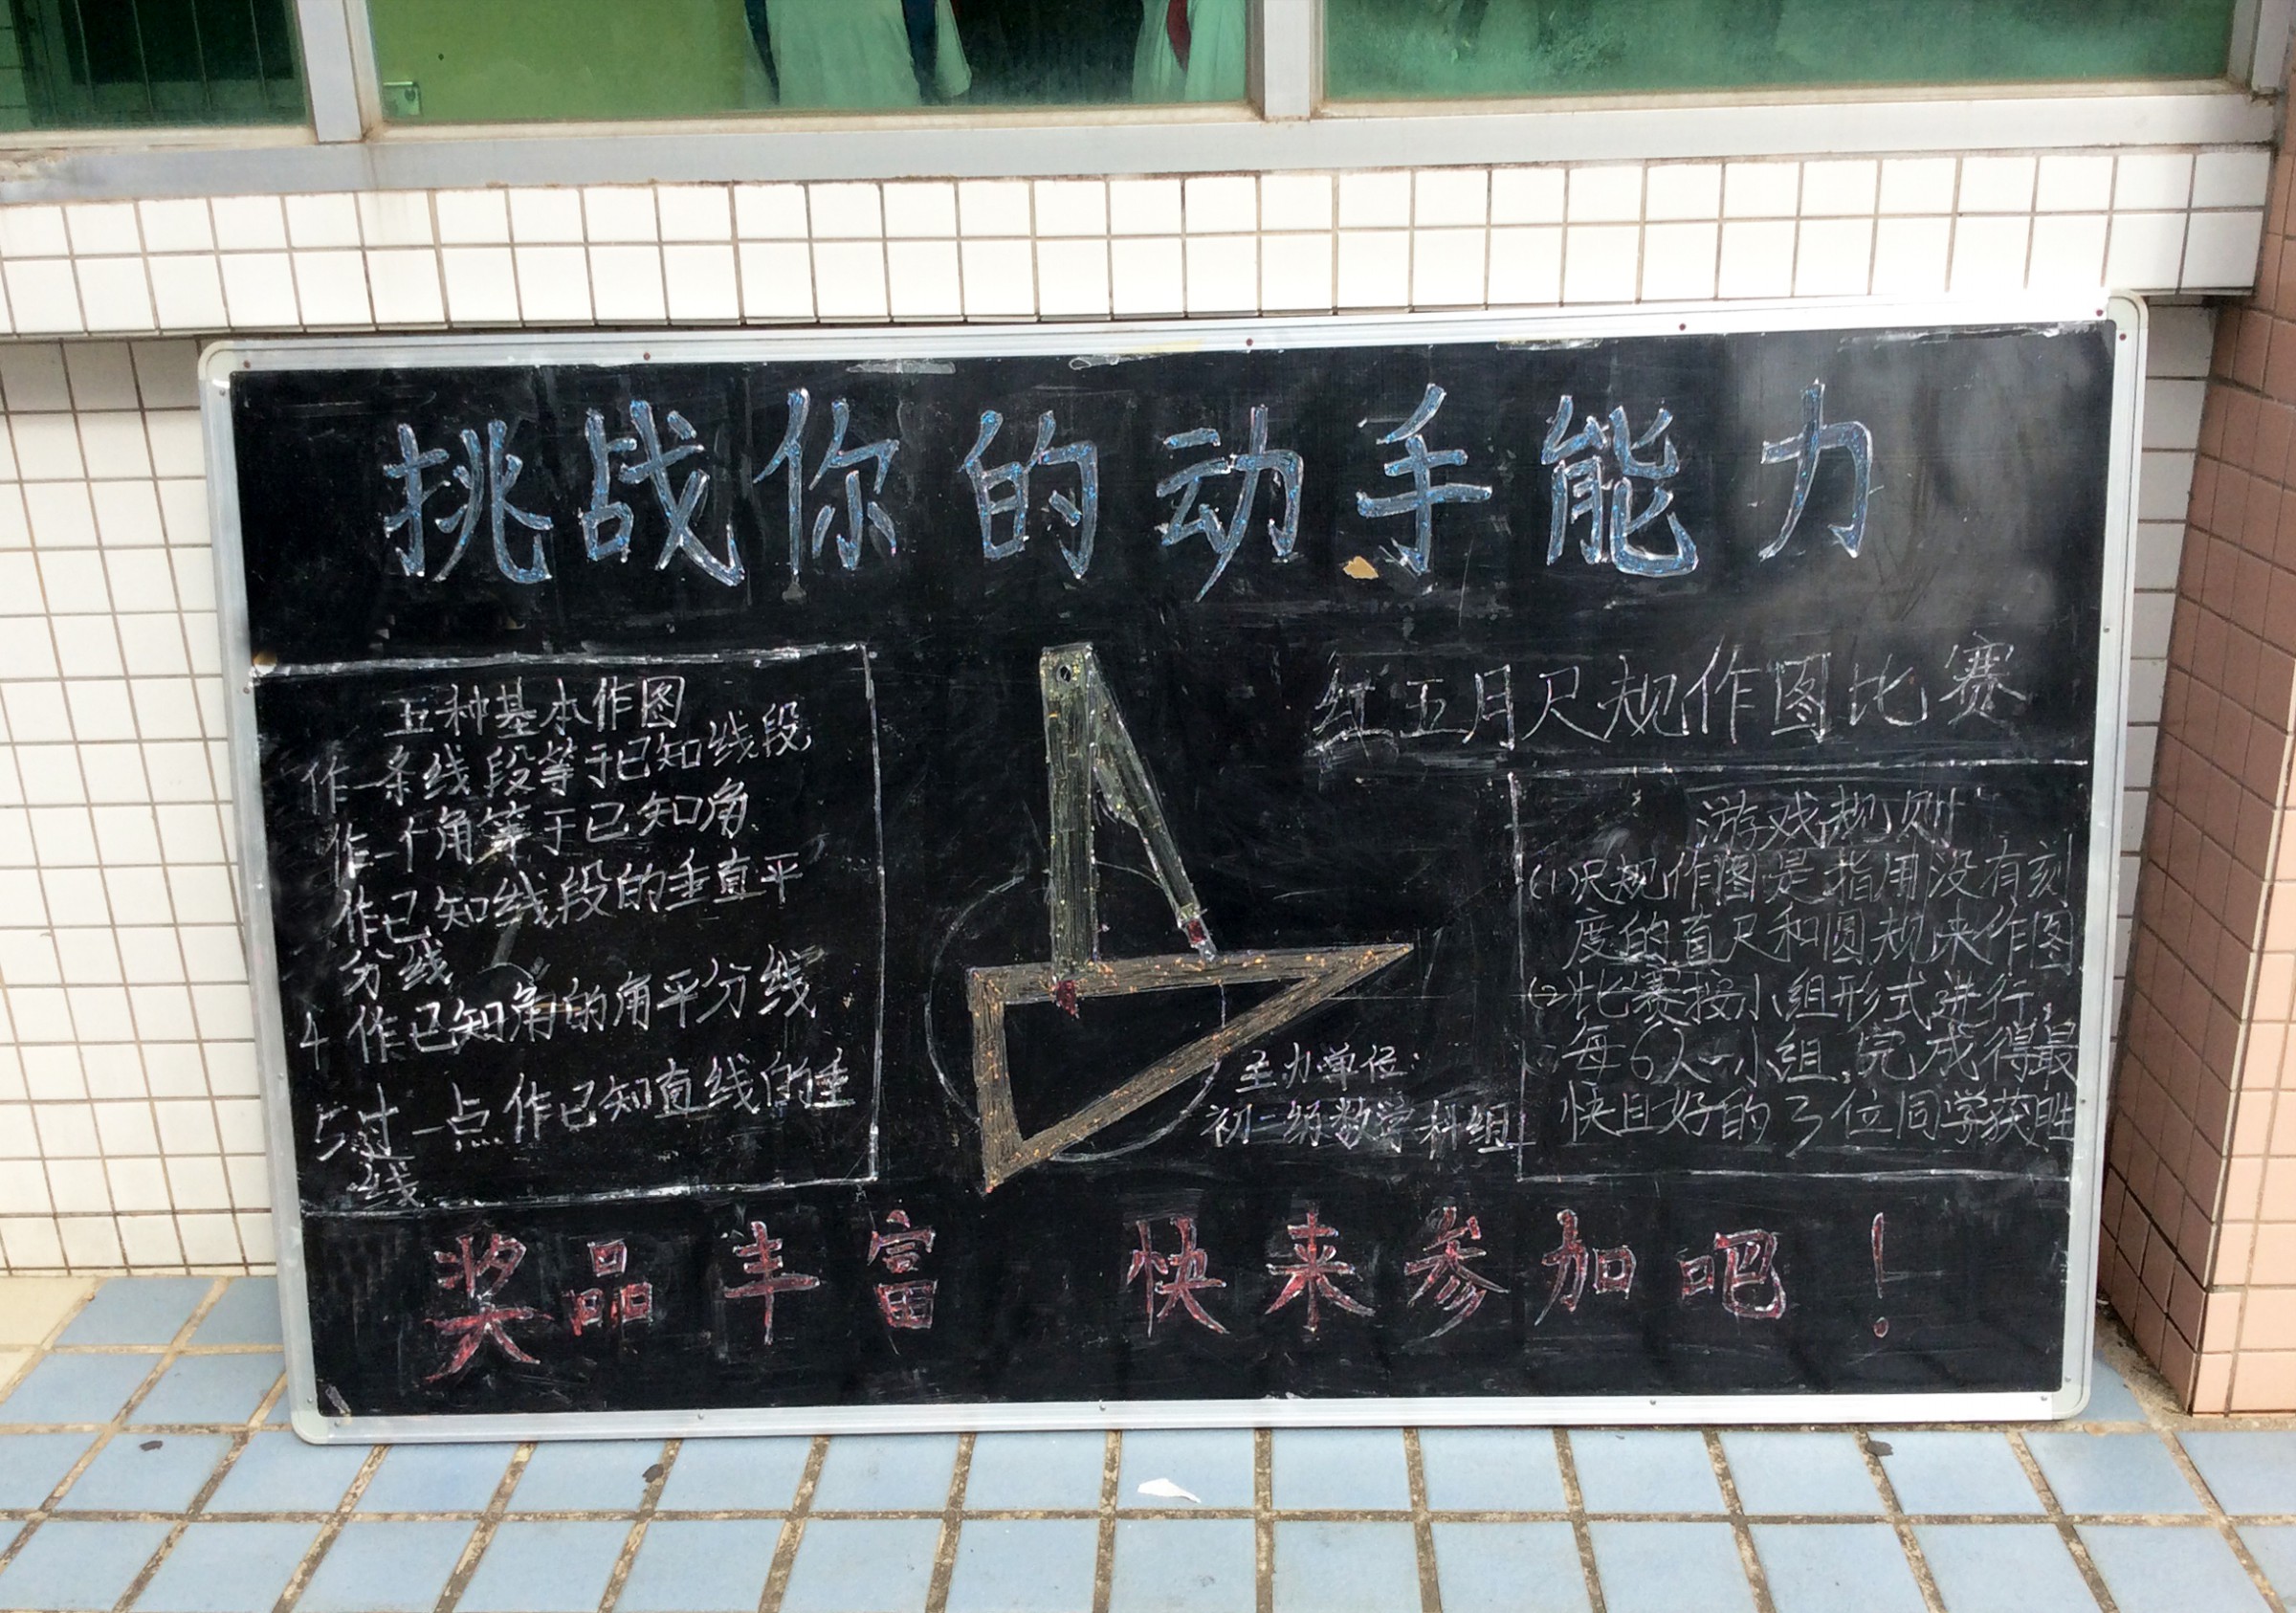 挑战你的动手能力
五种基本作图
作一条线段等于已知线段
作一个角等于已知角
作已知线段的垂直平
分线
4 作已知角的角平分线
5过一点作已知直线的垂
线
红五月尺规作图比赛
游戏规则
(1)尺规作图是指用没有刻
度的直尺和圆规来作图
(2)比赛按小组形式进行,
每6人一小组,完成得最
快且好的3位同学获胜
主办单位:
初二级数学科组
奖品丰富 快来参加吧!